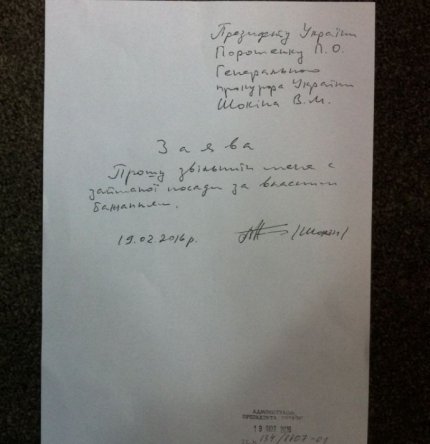 Президенту України
Порошенку П.О.
Генерального
прокурора України
Шокіна В.М.
Заява
Прошу звільнити мене с
займаної посади за власним
бажанням.
19.02.2016р.
/Шокін/
АДМІНІСТРАЦІЯ
ПРЕЗИДЕНТА УКРАЇНИ
19 ЛЮТ 2016
/1107-01